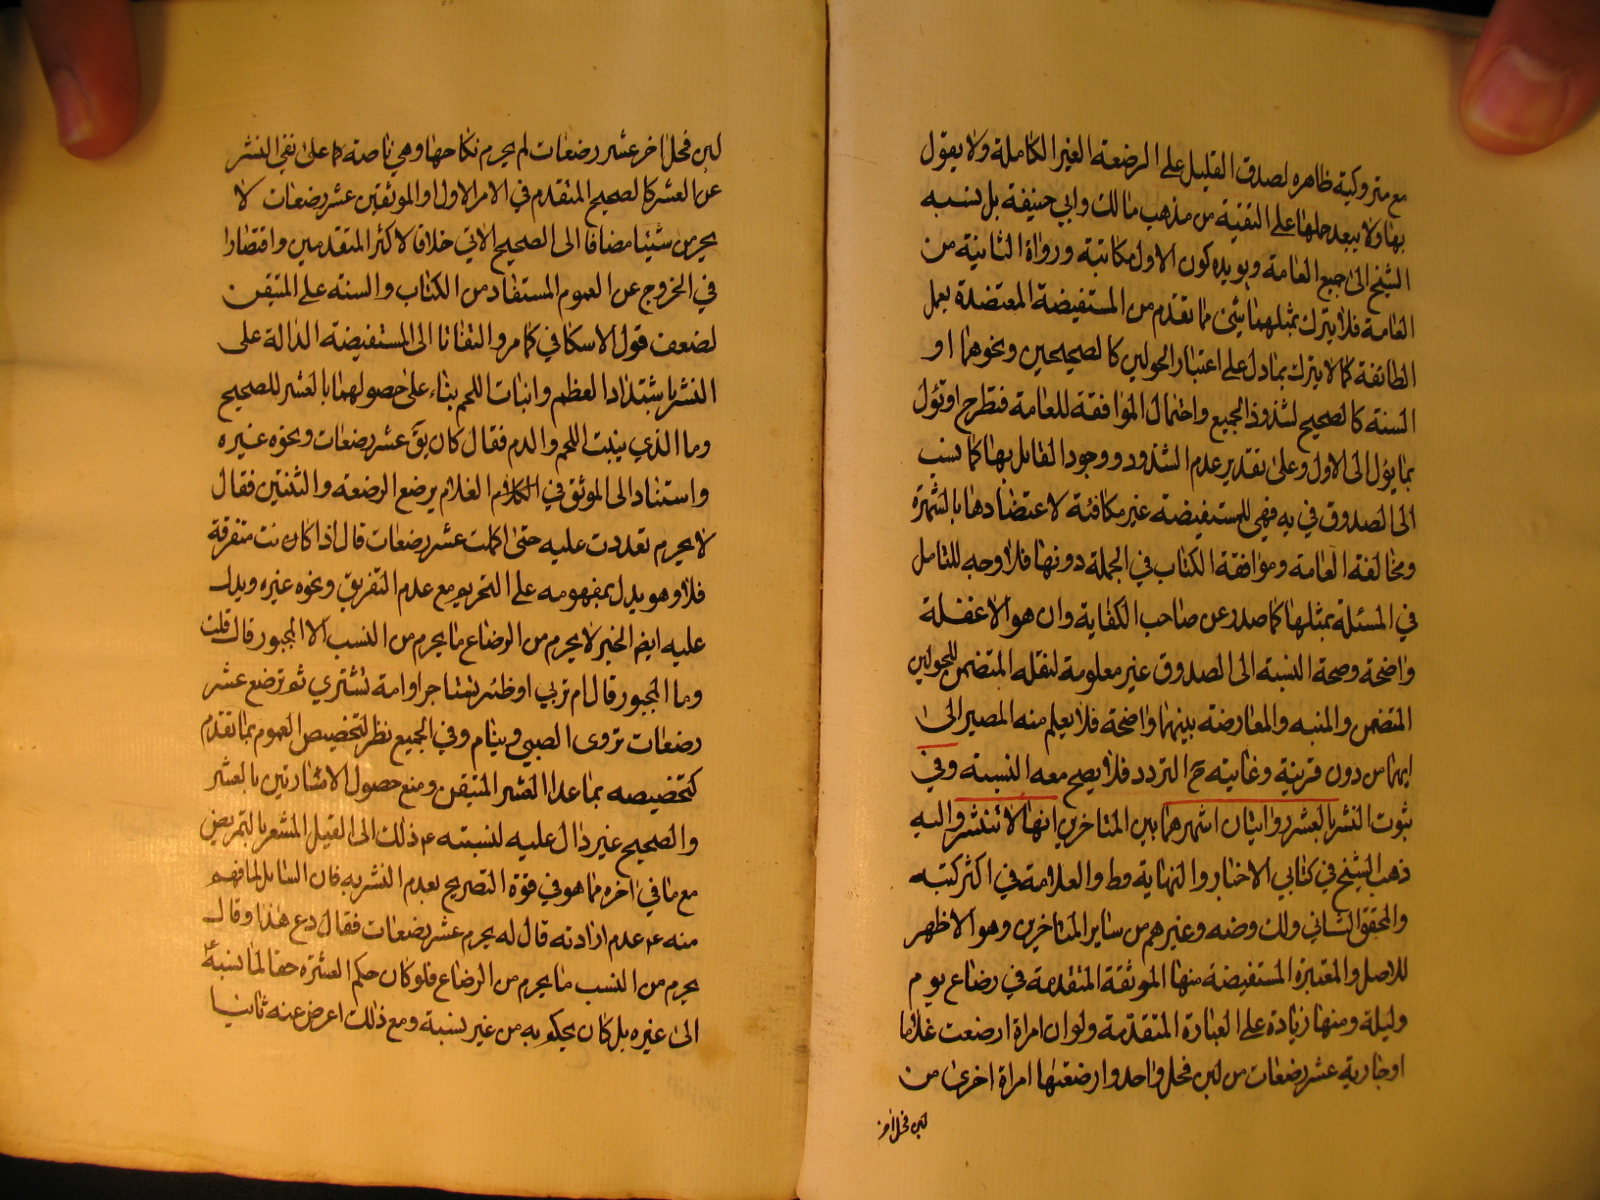 مع متروكية ظاهره لصدق القليل على الرضعة الغير الكاملة ولا يقول
بها ولا يبعد حملها على التقية من مذهب مالك وابي حنيفة بل نسبه
الشيخ الى جميع العامة ويؤيده كون الاول مكاتبة ورواة الثانية من
العامة فلا يترك بمثلهما شئ مما تقدم من المستفيضة المعتضدة بعمل
الطائفة كما لا يترك بما دل على اعتبار الحولين كالصحيحين ونحوهما او
السنة كالصحيح لشذوذ الجميع واحتمال الموافقة للعامة فتطرح او تؤل
بما يؤل الى الاول وعلى تقدير عدم الشذوذ ووجود القايل بها كما نسب
الى الصدوق في يه فهي للمستفيضة غير مكافئة لاعتضادها بالشهرة
ومخالفة العامة وموافقة الكتاب في الجملة دونها فلا وجه للتامل
في المسئلة بمثلها كما صدر عن صاحب الكفاية وان هو الا غفلة
واضحة وصحة النسبة الى الصدوق غير معلومة لنقله المتضمن للحولين
المتضمن والمنبه والمعارضة بينهما واضحة فلا يعلم منه المصير الى
ايهما من دون قرينة وغايته ح التردد فلا يصح معه النسبة وفي
ثبوت النشر بالعشر روايتان اشهرهما بين المتاخرين انها لا تنشر واليه
ذهب الشيخ في كتابي الاخبار والنهاية وط والعلامة في اكثر كتبه
والمحقق الثاني ولك وضه وغيرهم من ساير المتاخرين وهو الاظهر
للاصل والمعتبرة المستفيضة منها الموثقة المتقدمة في رضاع يوم
وليلة ومنها زيادة على العبارة المتقدمة ولو ان امراة ارضعت غلاما
او جارية عشر رضعات من لبن فحل واحد وارضعتها امراة اخرى من
لبن فحل اخر
لبن فحل اخر عشر رضعات لم يحرم نكاحها وهي ناصة على نفي النشر
عن العشر كالصحيح المتقدم في الامر الاول والموثقين عشر رضعات لا
يحرمن شيئا مضافا الى الصحيح الاتي خلافا لاكثر المتقدمين واقتصارا
في الخروج عن العموم المستفاد من الكتاب والسنة على المتيقن
لضعف قول الاسكافي كما مر والتفاتا الى المستفيضة الدالة على
النشر باشتداد العظم وانبات اللحم بناء على حصولهما بالعشر للصحيح
وما الذي ينبت اللحم والدم فقال كان يق عشر رضعات ونحوه غيره
واستنادا الى الموثق في الغلام يرضع الرضعة والثنتين فقال
لا يحرم تعددت عليه حتى اكملت عشر رضعات قال اذا كانت متفرقة
فلا وهو يدل بمفهومه على التحريم مع عدم التفريق ونحوه غيره ويدل
عليه ايض الخبر لا يحرم من الرضاع ما يحرم من النسب الا المجبور قال قلت
وما المجبور قال ام تربي او ظئر تستاجر او امة تشتري ثم ترضع عشر
رضعات تروى الصبي وينام وفي الجميع نظر لتخصيص العموم بما تقدم
كتخصيصه بما عدا العشر المتيقن ومنع حصول الاشارتين بالعشر
والصحيح غير دال عليه لنسبته ع ذلك الى القيل المشعر بالتمريض
مع ما في اخره مما هو في قوة التصريح بعدم النشر به فان السايل لما فهم
منه ع عدم ارادته قال له يحرم عشر رضعات فقال دع هذا وقال
يحرم من النسب ما يحرم من الرضاع فلو كان حكم العشرة حقا لما نسبه
الى غيره بل كان يحكم به من غير نسبة ومع ذلك اعرض عنه ثانيا